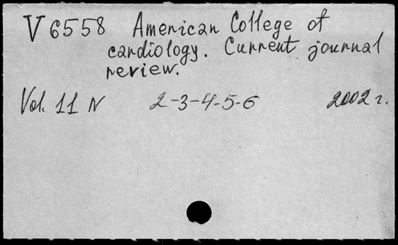 V 6558 American College of
cardiology. Current journal
review.
Vol. 11 N 2-3-4-5-6 2002 г.